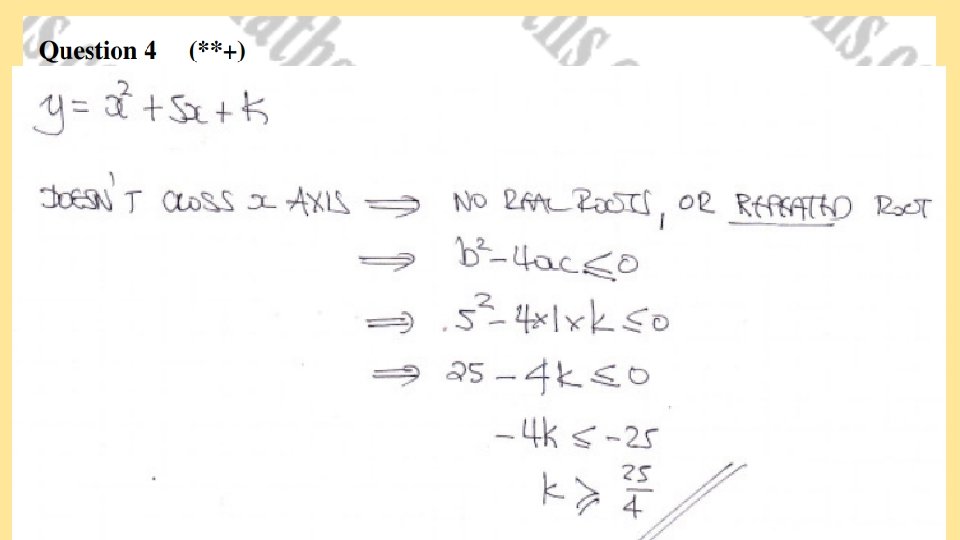 Question 4 (**+)
y = x² + 5x + k
DOESN'T CROSS x AXIS ⟹ NO REAL ROOTS, OR REPEATED ROOT
⟹ b² - 4ac ≤ 0
⟹ 5² - 4×1×k ≤ 0
⟹ 25 - 4k ≤ 0
-4k ≤ -25
k ≥ 25/4